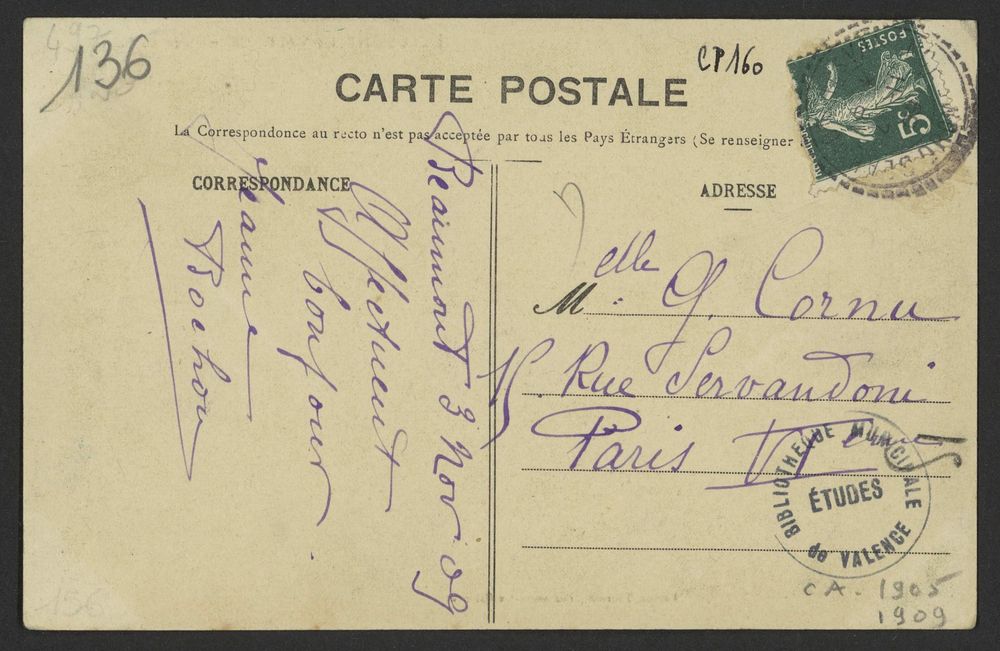 497
136
CP160
CARTE POSTALE
La Correspondonce au recto n'est pas acceptée par tous les Pays Étrangers (Se renseigner
POSTES
5c
CORRESPONDANCE
Beaumont 3 Nov 09
Affectueut
bonjour.
Jeanne
Bochou
ADRESSE
M.elle G. Cornu
15. Rue Servandoni
Paris VIe
BIBLIOTHEQUE MUNICIPALE
ÉTUDES
de VALENCE
CA. 1905
1909
136